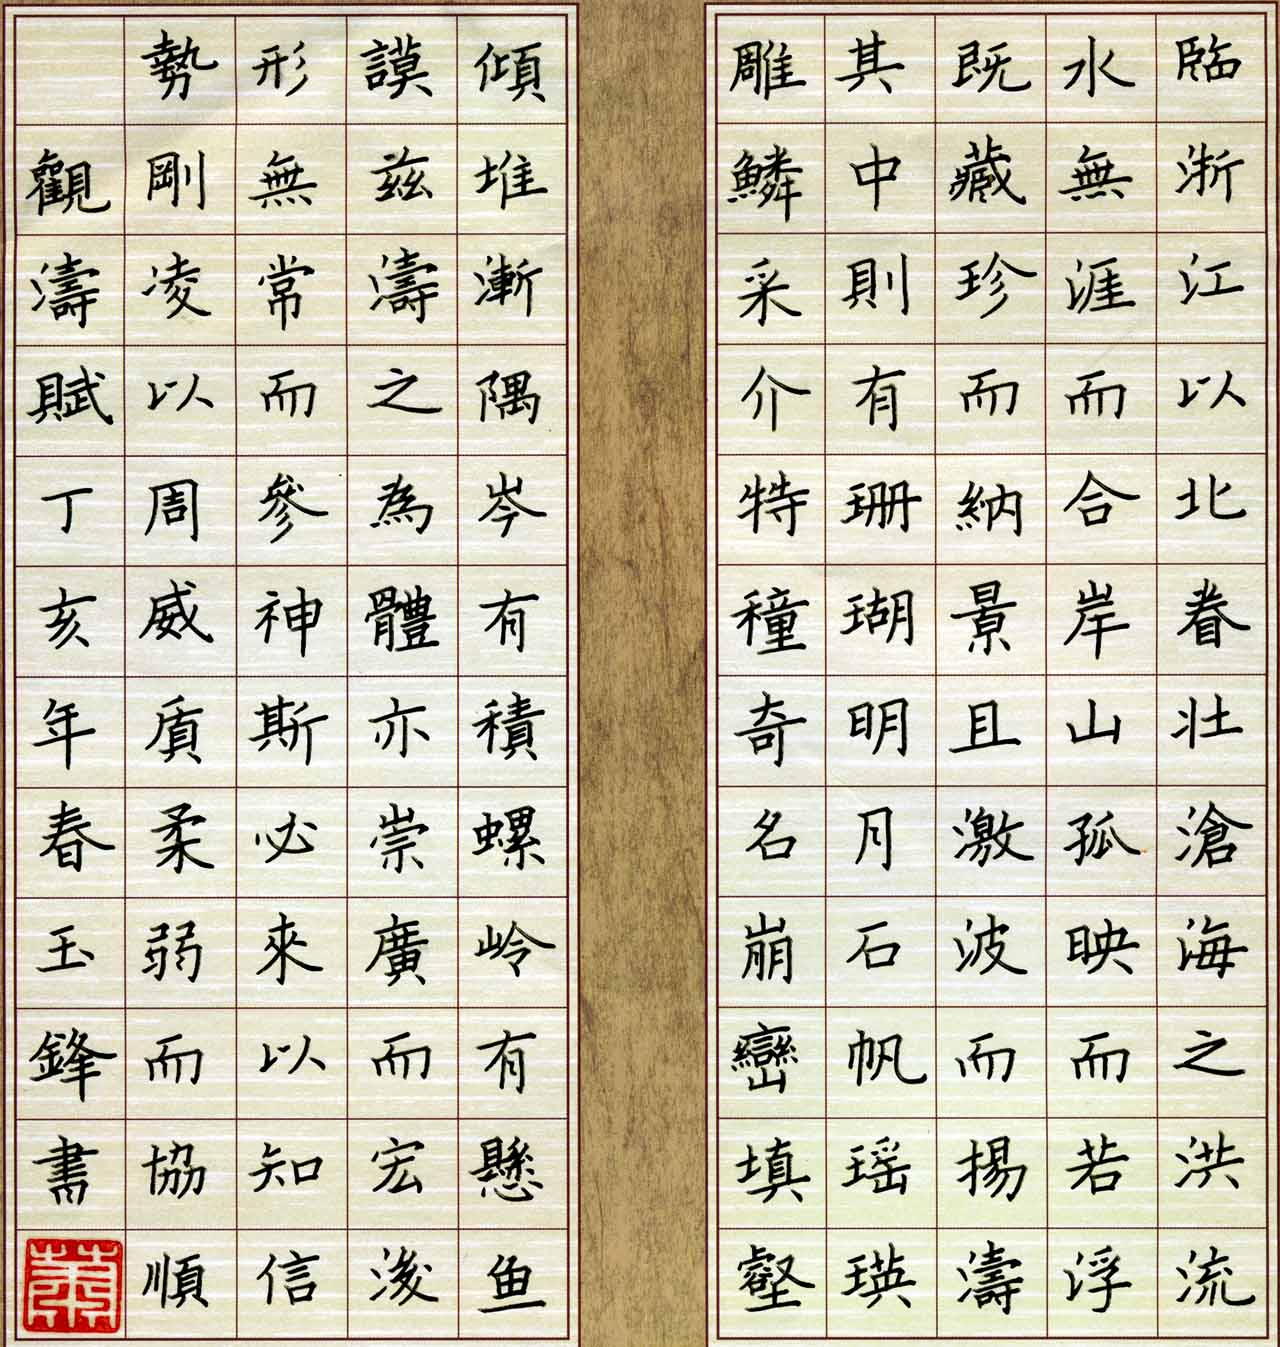 臨浙江以北眷壯滄海之洪流
水無涯而合岸山孤映而若浮
既藏珍而納景且激波而揚濤
其中則有珊瑚明月石帆瑶瑛
雕鱗采介特穜奇名崩巒填壑
傾堆漸隅岑有積螺岭有懸鱼
謨兹濤之為體亦崇廣而宏浚
形無常而參神斯必來以知信
勢剛凌以周威質柔弱而協順
觀濤賦丁亥年春玉鋒書